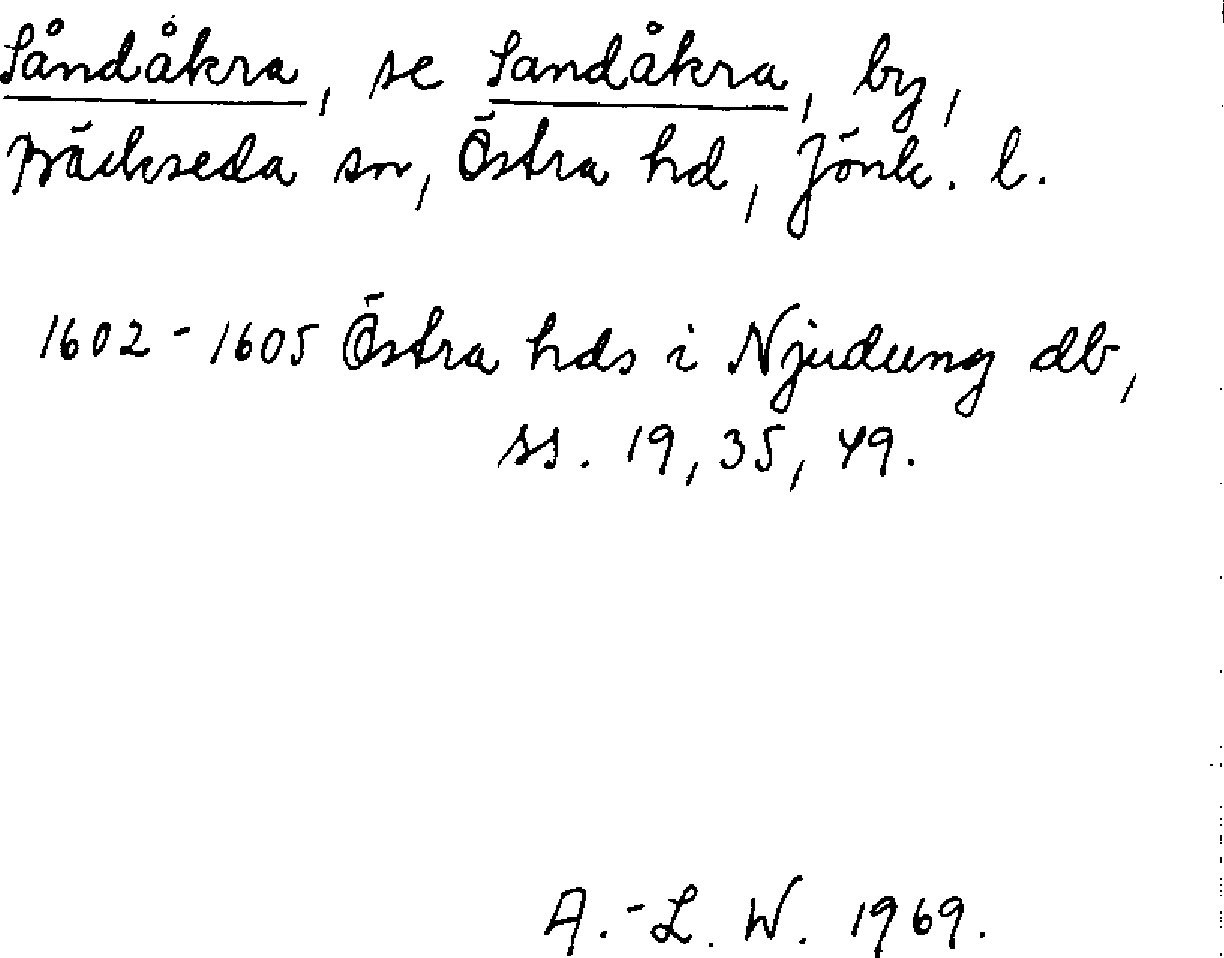 Såndåkra, se Sandåkra, by,
Bäckseda sn, Östra hd, Jönk. l.
1602-1605 Östra hds i Njudung db,
ss. 19, 35, 49.
A.-L. W. 1969.